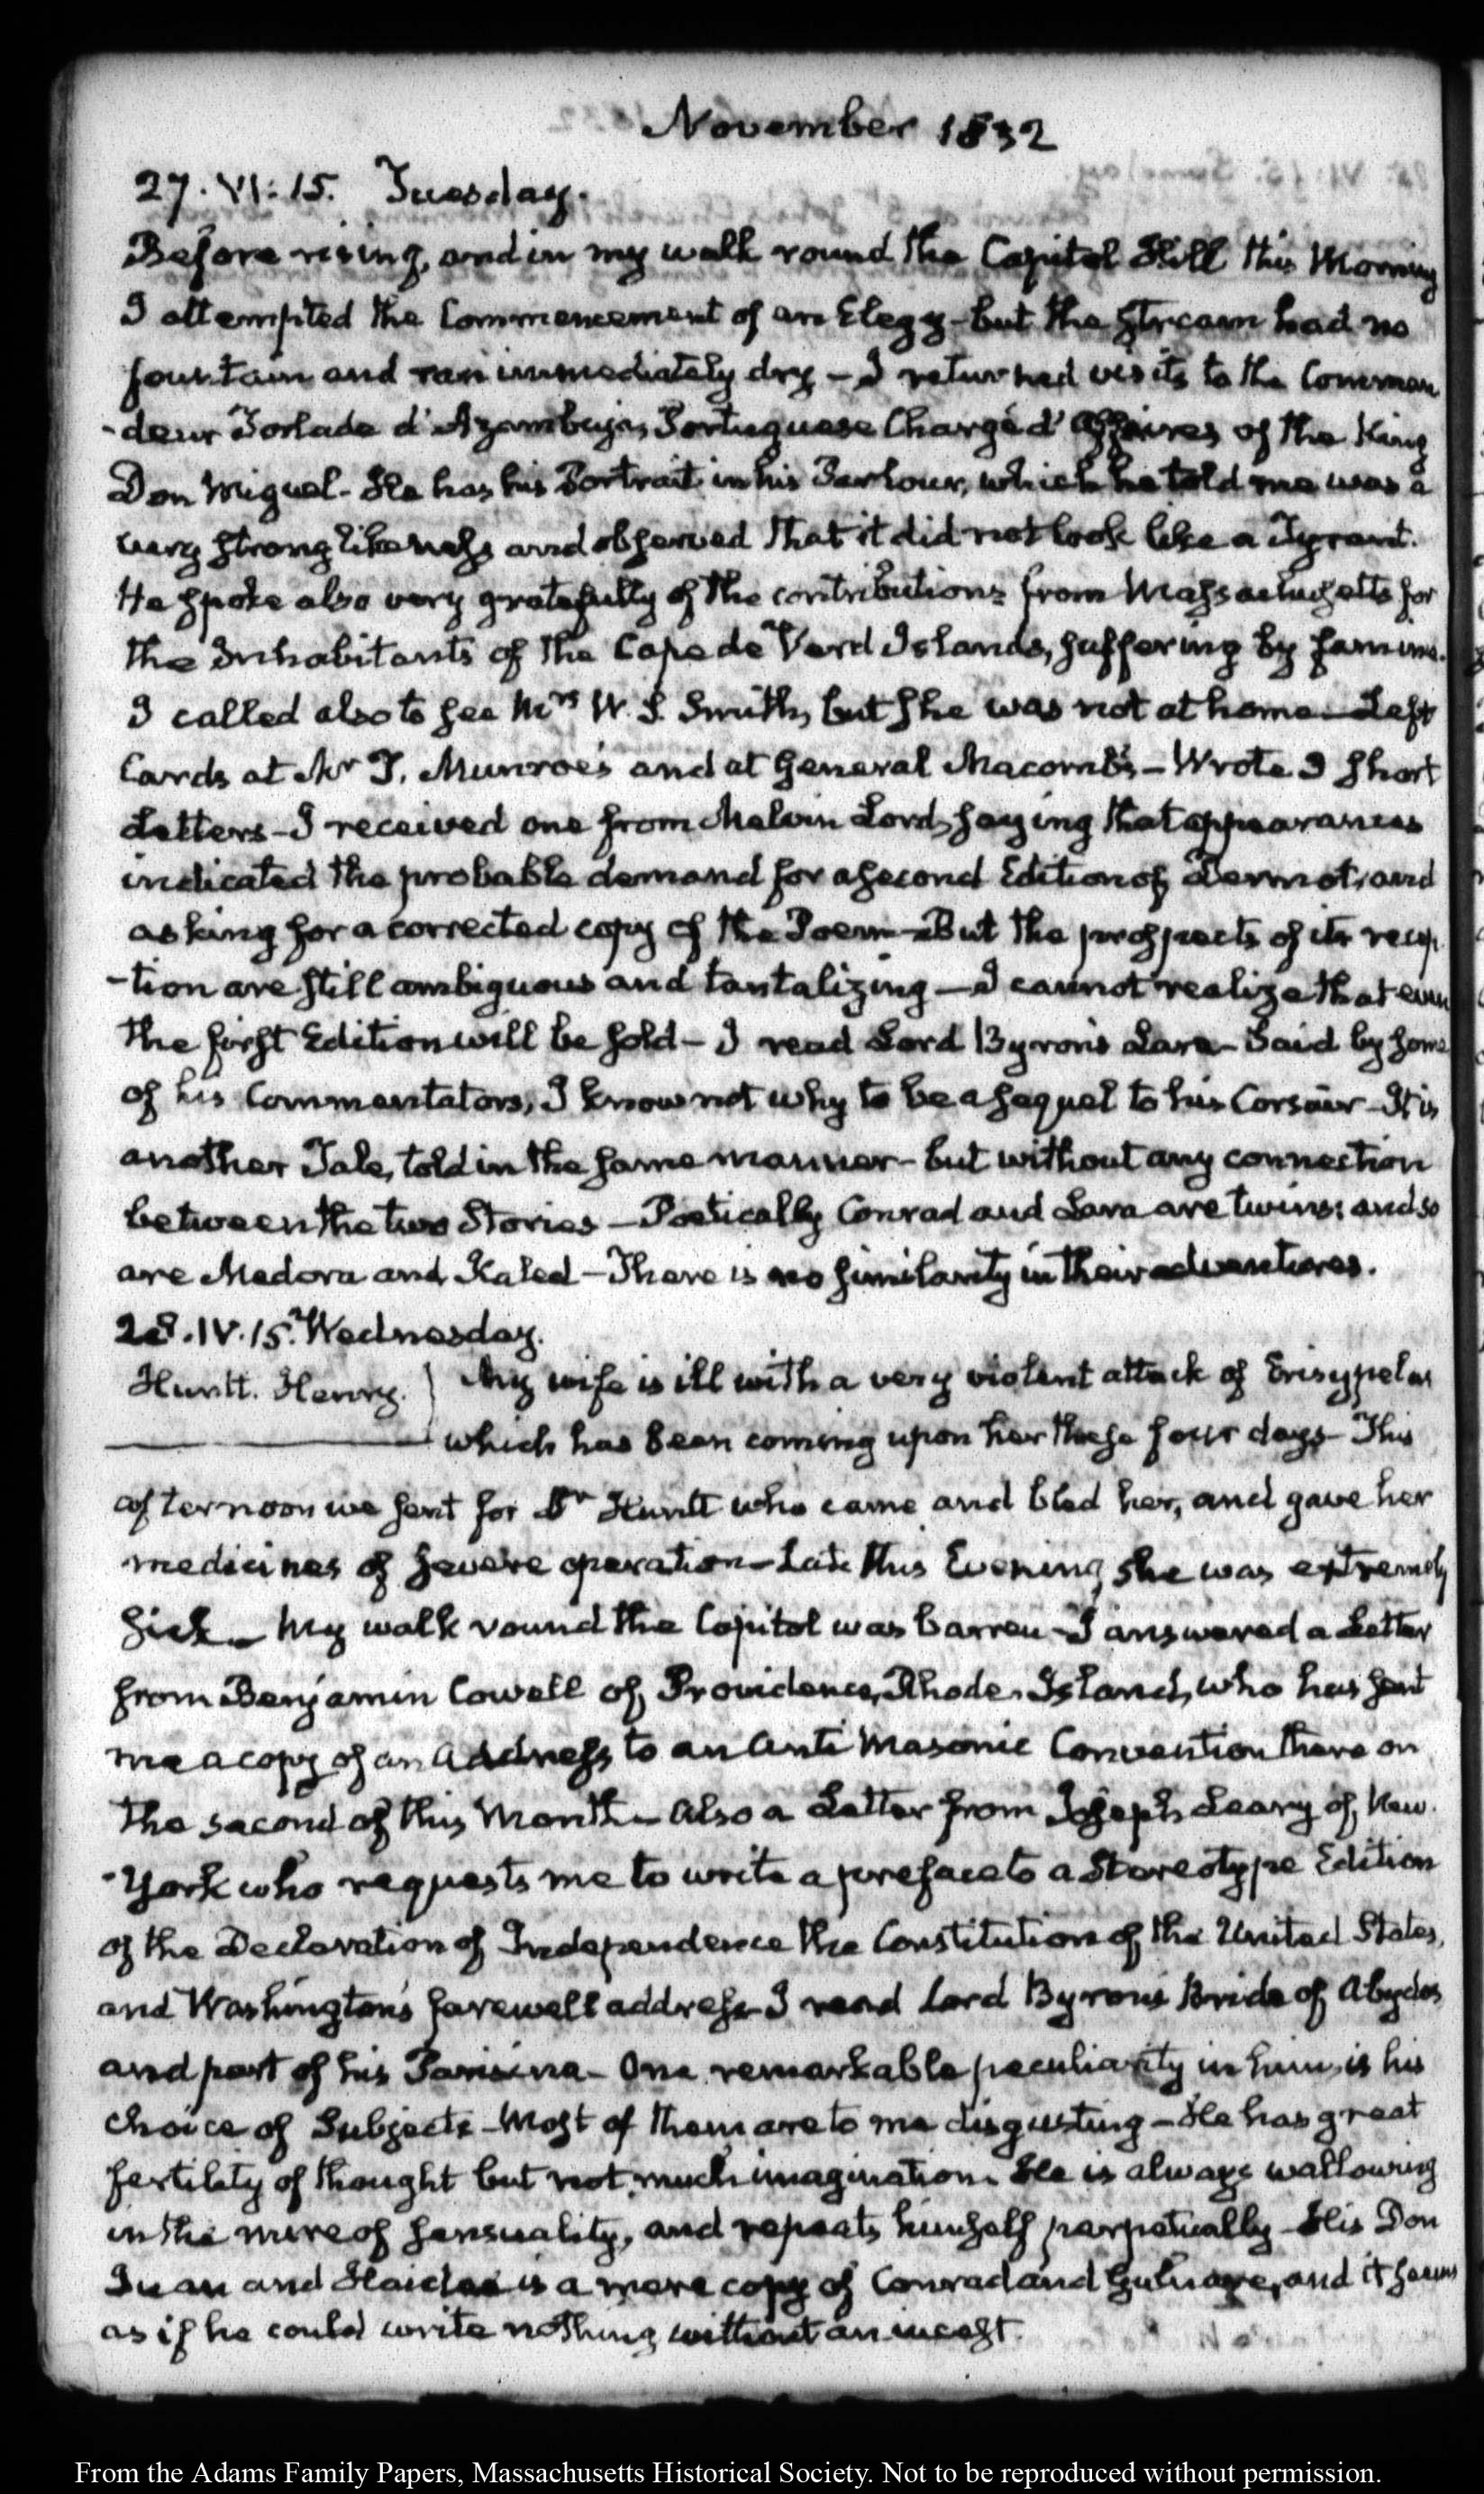 November 1832
27. VI: 15. Tuesday.
Before rising, and in my walk round the Capitol Hill this Morning
I attempted the Commencement of an Elegy - but the stream had no
fountain and ran immediately dry - I returned visits to the Comman
-deur Torlade d'Azambuja, Portuguese Chargé d'Affaires of the King
Don Miguel - He has his Portrait in his Parlour, which he told me was a
very strong likeness and observed that it did not look like a Tyrant.
He spoke also very gratefully of the contributions from Massachusetts for
the Inhabitants of the Cape de Verd Islands, suffering by famine.
I called also to see Mrs W. S. Smith, but she was not at home - Left
Cards at Mr T. Munroe's and at General Macomb's - Wrote 3 short
Letters - I received one from Melvin Lord, saying that appearances
indicated the probable demand for a second Edition of Dermot, and
asking for a corrected copy of the Poem - But the prospects of its recep
-tion are still ambiguous and tantalizing - I cannot realize that even
the first Edition will be sold - I read Lord Byron's Lara - Said by some
of his Commentators, I know not why to be a sequel to his Corsair - It is
another Tale, told in the same manner - but without any connection
between the two Stories - Poetically Conrad and Lara are twins; and so
are Medora and Kaled - There is no similarity in their adventures.
28. IV. 15. Wednesday.
Huntt. Henry. } My wife is ill with a very violent attack of Erisypelas
which has been coming upon her these four days - This
afternoon we sent for Dr Huntt who came and bled her, and gave her
medicines of severe operation - Late this Evening she was extremely
sick - My walk round the Capitol was barren - I answered a Letter
from Benjamin Cowell of Providence, Rhode-Island, who has sent
me a copy of an Address to an Anti Masonic Convention there on
the second of this Month - Also a Letter from Joseph Leary of New
-York who requests me to write a preface to a Stereotype Edition
of the Declaration of Independence the Constitution of the United States,
and Washington's farewell address - I read Lord Byron's Bride of Abydos
and part of his Parisina - One remarkable peculiarity in him, is his
choice of Subjects - Most of them are to me disgusting - He has great
fertility of thought but not much imagination. He is always wallowing
in the mire of sensuality, and repeats himself perpetually - His Don
Juan and Haidee is a mere copy of Conrad and Gulnare, and it seems
as if he could write nothing without an incest.
From the Adams Family Papers, Massachusetts Historical Society. Not to be reproduced without permission.